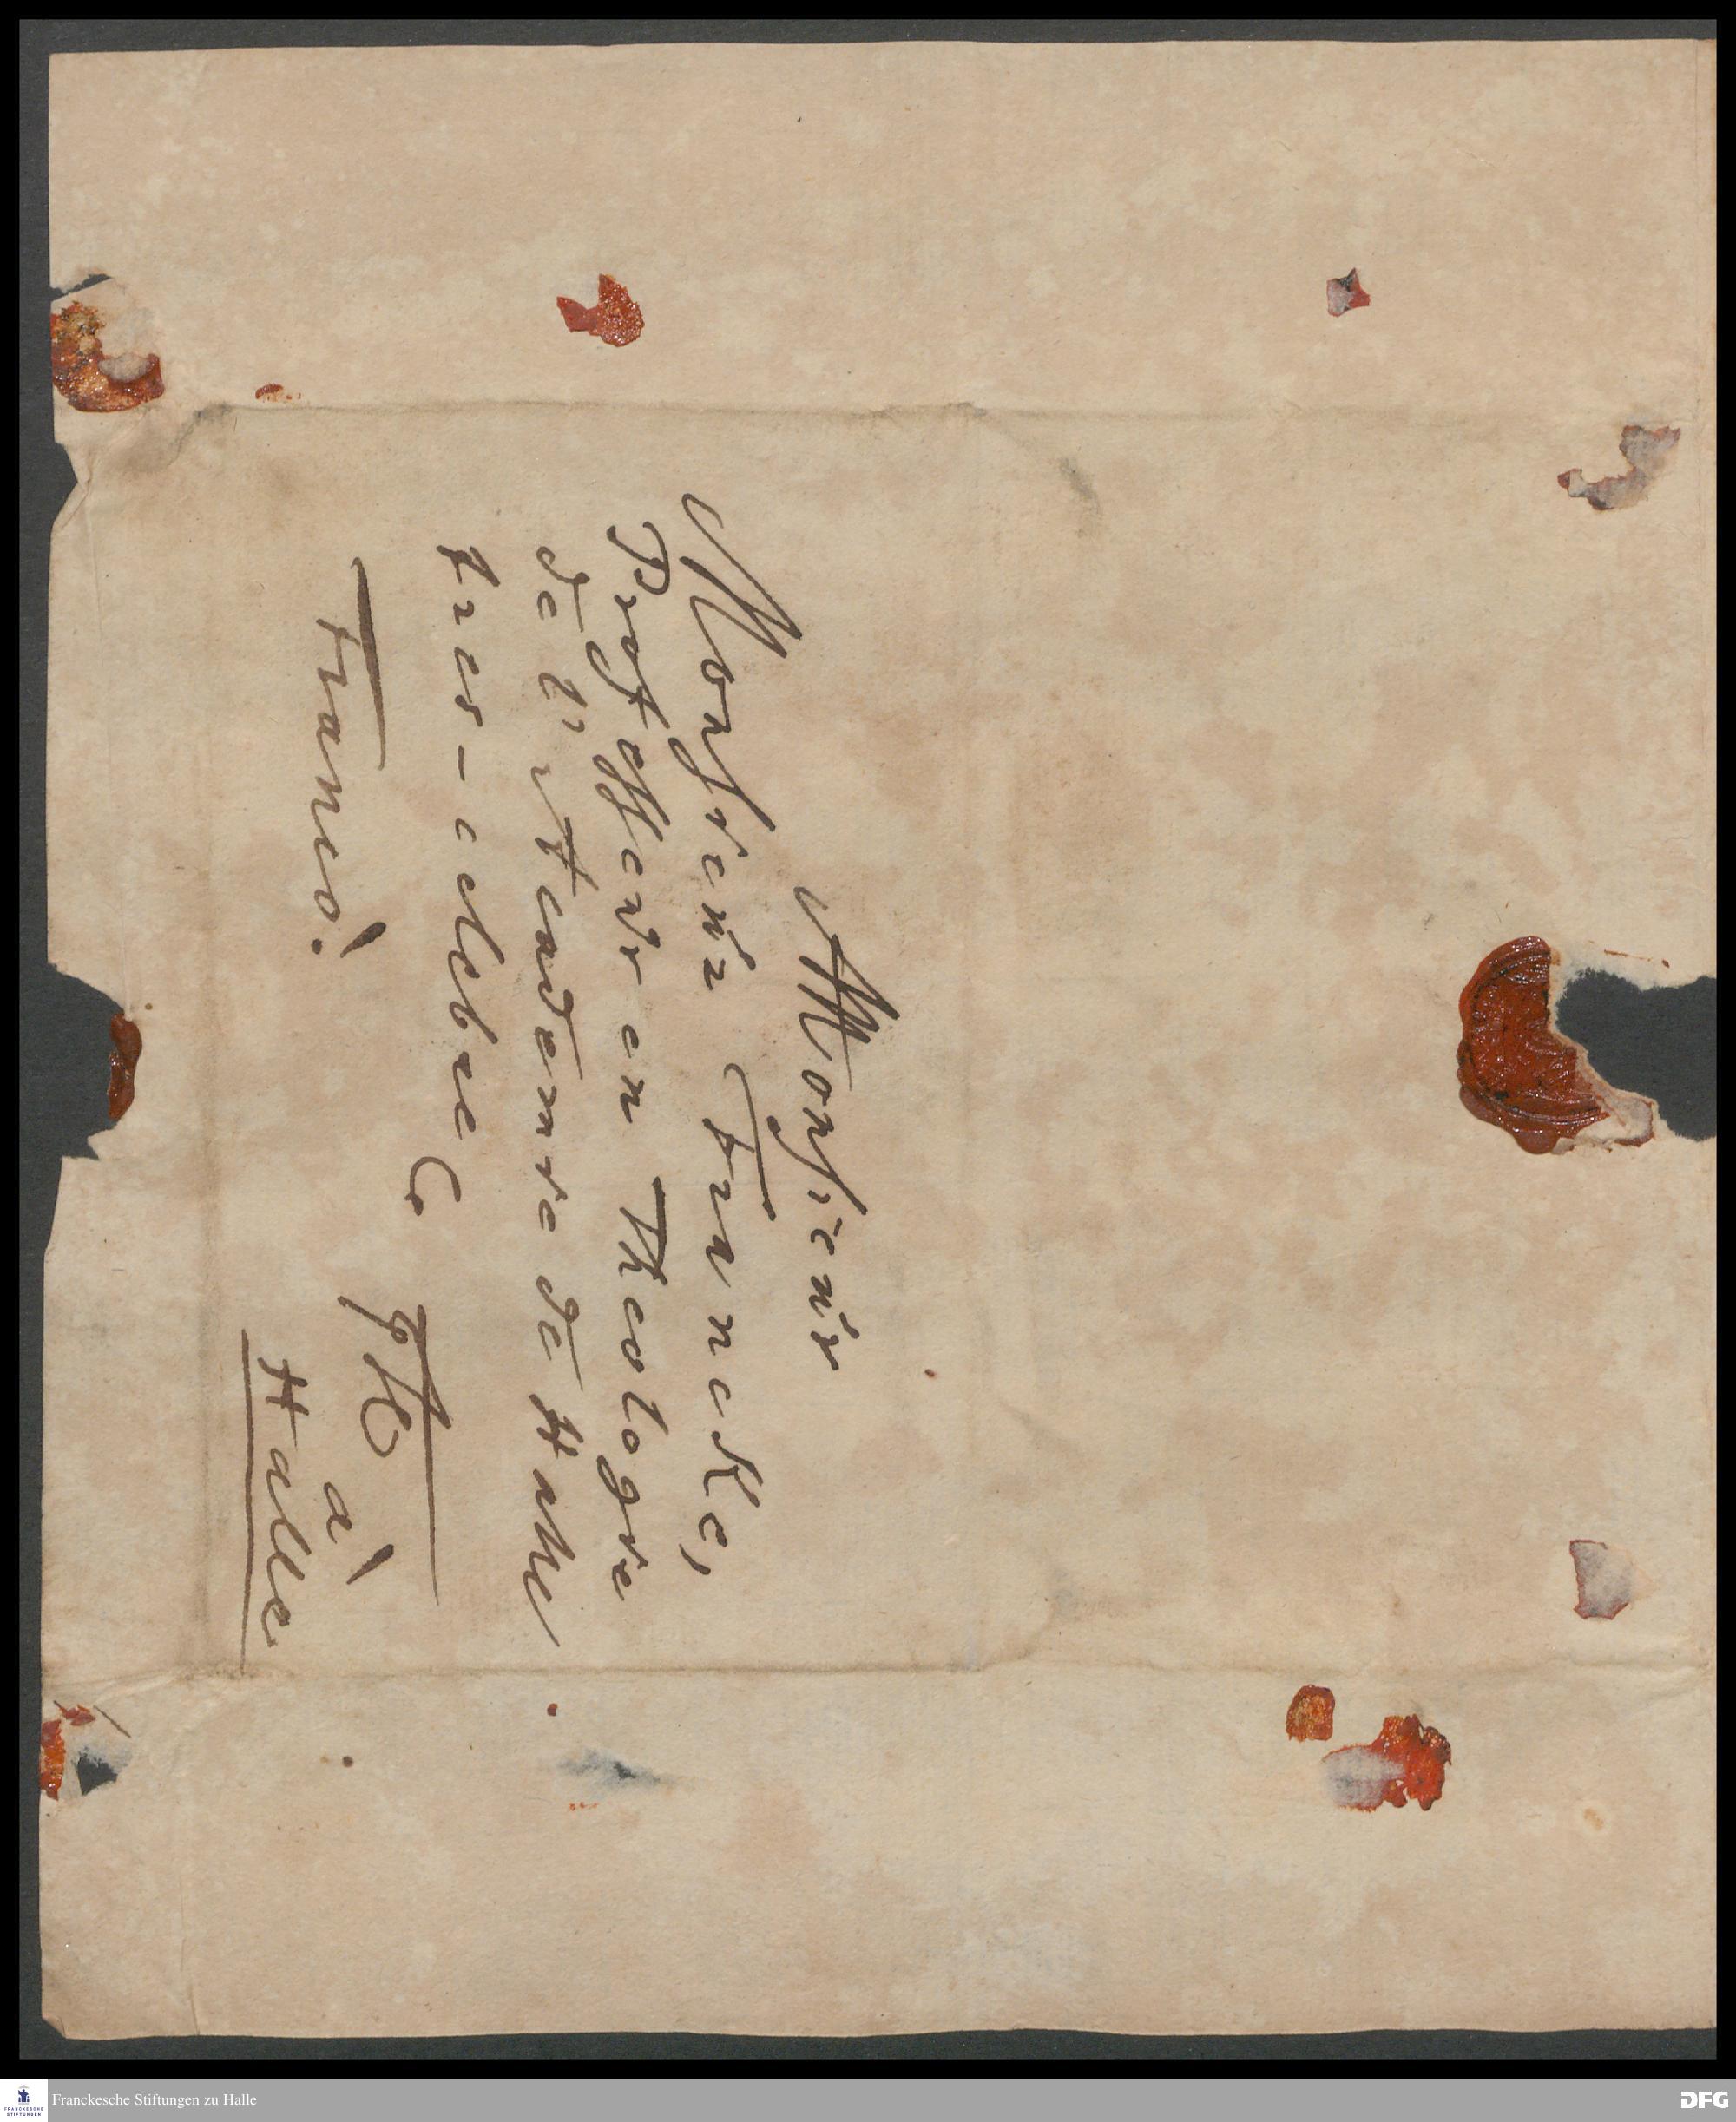 Monsieur
Monsieur Francke,
Professeur en Theologie
de l' Academie de Halle
tres-celebre
à
Franco.
Halle
Franckesche Stiftungen zu Halle
FRANCKESCHE
STIFTUNGEN
DFG